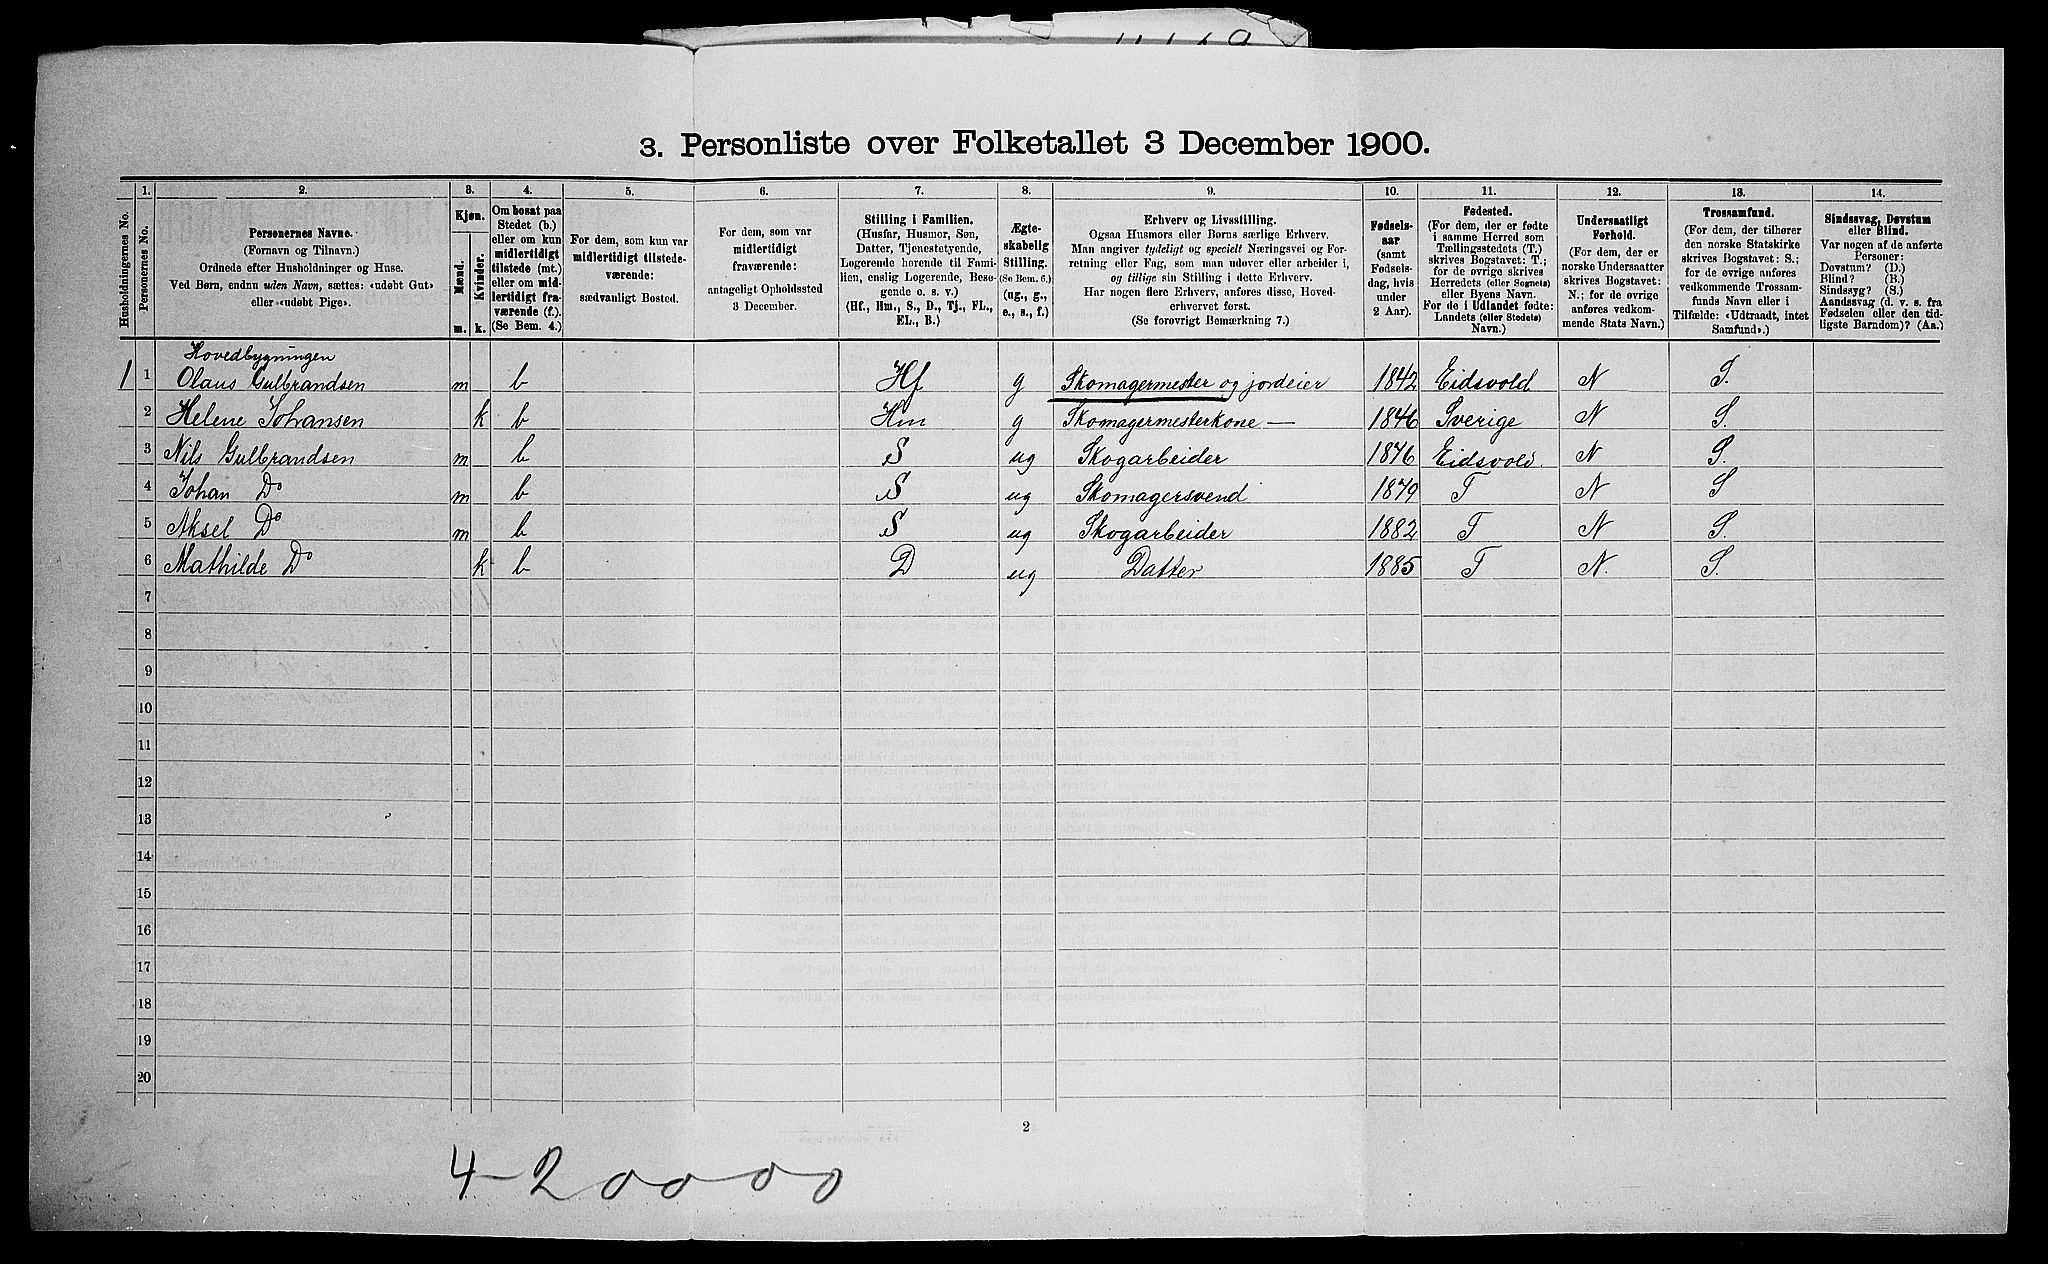 3. Personliste over Folketallet 3 December 1900.
Husholdningernes No.
1.
Personernes No.
2.
Personernes Navne.
(Fornavn og Tilnavn.)
Ordnede efter Husholdninger og Huse.
Ved Børn, endnu uden Navn, sættes: «udøbt Gut»
eller «udøbt Pige».
3.
Kjøn.
Mænd.
Kvinder.
m.
k.
4.
Om bosat paa
Stedet (b.)
eller om kun
midlertidigt
tilstede (mt.)
eller om mid-
lertidigt fra-
værende (f.)
(Se Bem. 4.)
5.
For dem, som kun var
midlertidigt tilstede-
værende:
sædvanligt Bosted.
6.
For dem, som var
midlertidigt
fraværende:
antageligt Opholdssted
3 December.
7.
Stilling i Familien.
(Husfar, Husmor, Søn,
Datter, Tjenestetyende,
Logerende hørende til Fami-
lien, enslig Logerende, Besø-
gende o. s. v.)
(Hf., Hm., S., D., Tj., FL.,
EL., B.)
8.
Ægte-
skabelig
Stilling.
(Se Bem. 6.)
(ug., g.,
e., s., f.)
9.
Erhverv og Livsstilling.
Ogsaa Husmors eller Børns særlige Erhverv.
Man angiver tydeligt og specielt Næringsvei og For-
retning eller Fag, som man udøver eller arbeider i,
og tillige sin Stilling i dette Erhverv.
Har nogen flere Erhverv, anføres disse, Hoved-
erhvervet først.
(Se forøvrigt Bemærkning 7.)
10.
Fødsels-
aar
(samt
Fødsels-
dag, hvis
under
2 Aar).
11.
Fødested.
(For dem, der er fødte
i samme Herred som
Tællingsstedets (T.)
skrives Bogstavet: T.;
for de øvrige skrives
Herredets (eller Sognets)
eller Byens Navn.
For de i Udlandet fødte:
Landets (eller Stedets)
Navn.)
12.
Undersaatligt
Forhold.
(For dem, der er
norske Undersaatter
skrives Bogstavet:
N.; for de øvrige
anføres vedkom-
mende Stats Navn.)
13.
Trossamfund.
(For dem, der tilhører
den norske Statskirke
skrives Bogstavet: S.;
for de øvrige anføres
vedkommende Trossam-
funds Navn eller i
Tilfælde: «Udtraadt, intet
Samfund».)
14.
Sindssvag, Døvstum
eller Blind.
Var nogen af de anførte
Personer:
Døvstum? (D.)
Blind? (B.)
Sindssyg? (S.)
Aandssvag (d. v. s. fra
Fødselen eller den tid-
ligste Barndom)? (Aa.)
Hovedbygningen
1 1 Olaus Gulbrandsen m b Hf g Skomagermester og jordeier 1842 Eidsvold N S.
2 Helene Johansen k b Hm g Skomagermesterkone — 1846 Sverige N S.
3 Nils Gulbrandsen m b S ug Skogarbeider 1876 Eidsvold. N S.
4 Johan Do m b S ug Skomagersvend 1879 T N S
5 Aksel Do m b S ug Skogarbeider 1882 T N S.
6 Mathilde Do k b D ug Datter 1885 T N. S.
7
8
9
10
11
12
13
14
15
16
17
18
19
20
2
4-20000